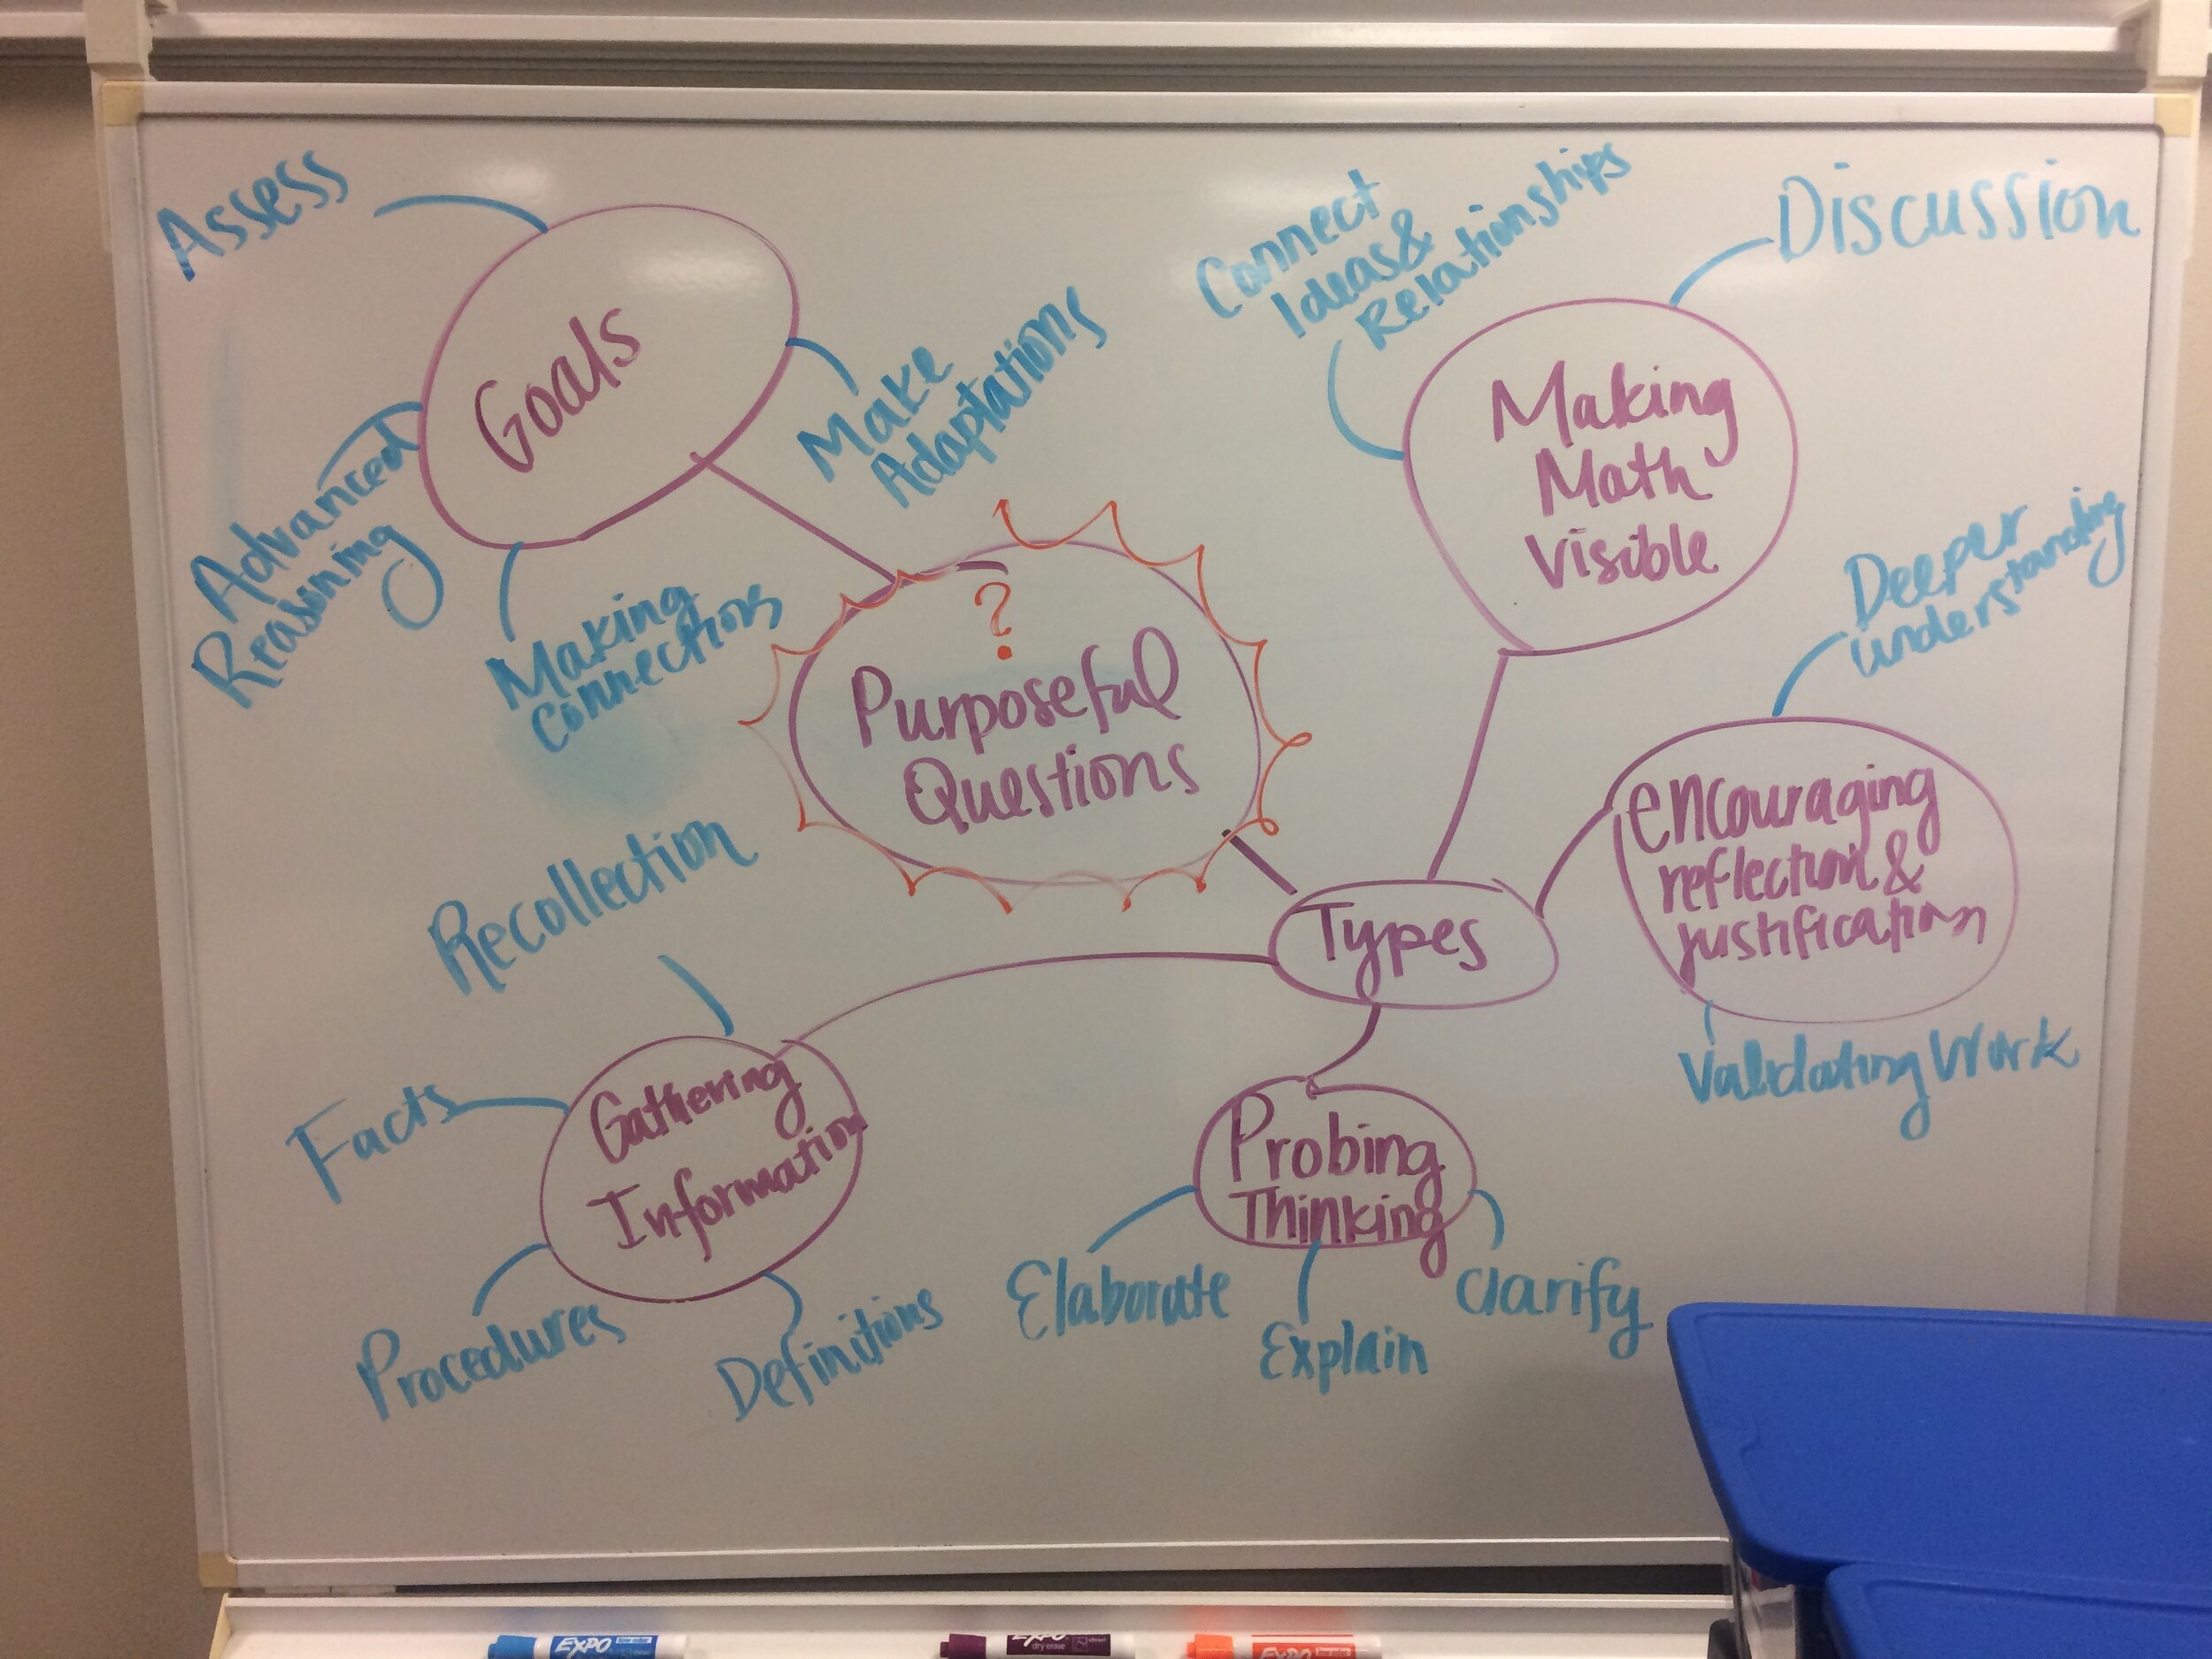 Assess
Goals
Make
Adaptations
Advanced
Reasoning
Making
Connections
Connect
Ideas &
Relationships
Discussion
Making
Math
Visible
?
Purposeful
Questions
Deeper
understanding
encouraging
reflection &
justification
Validating Work
Types
Recollection
Facts
Gathering
Information
Procedures
Definitions
Probing
Thinking
Elaborate
Explain
Clarify
EXPO
EXPO
dry erase
EXPO